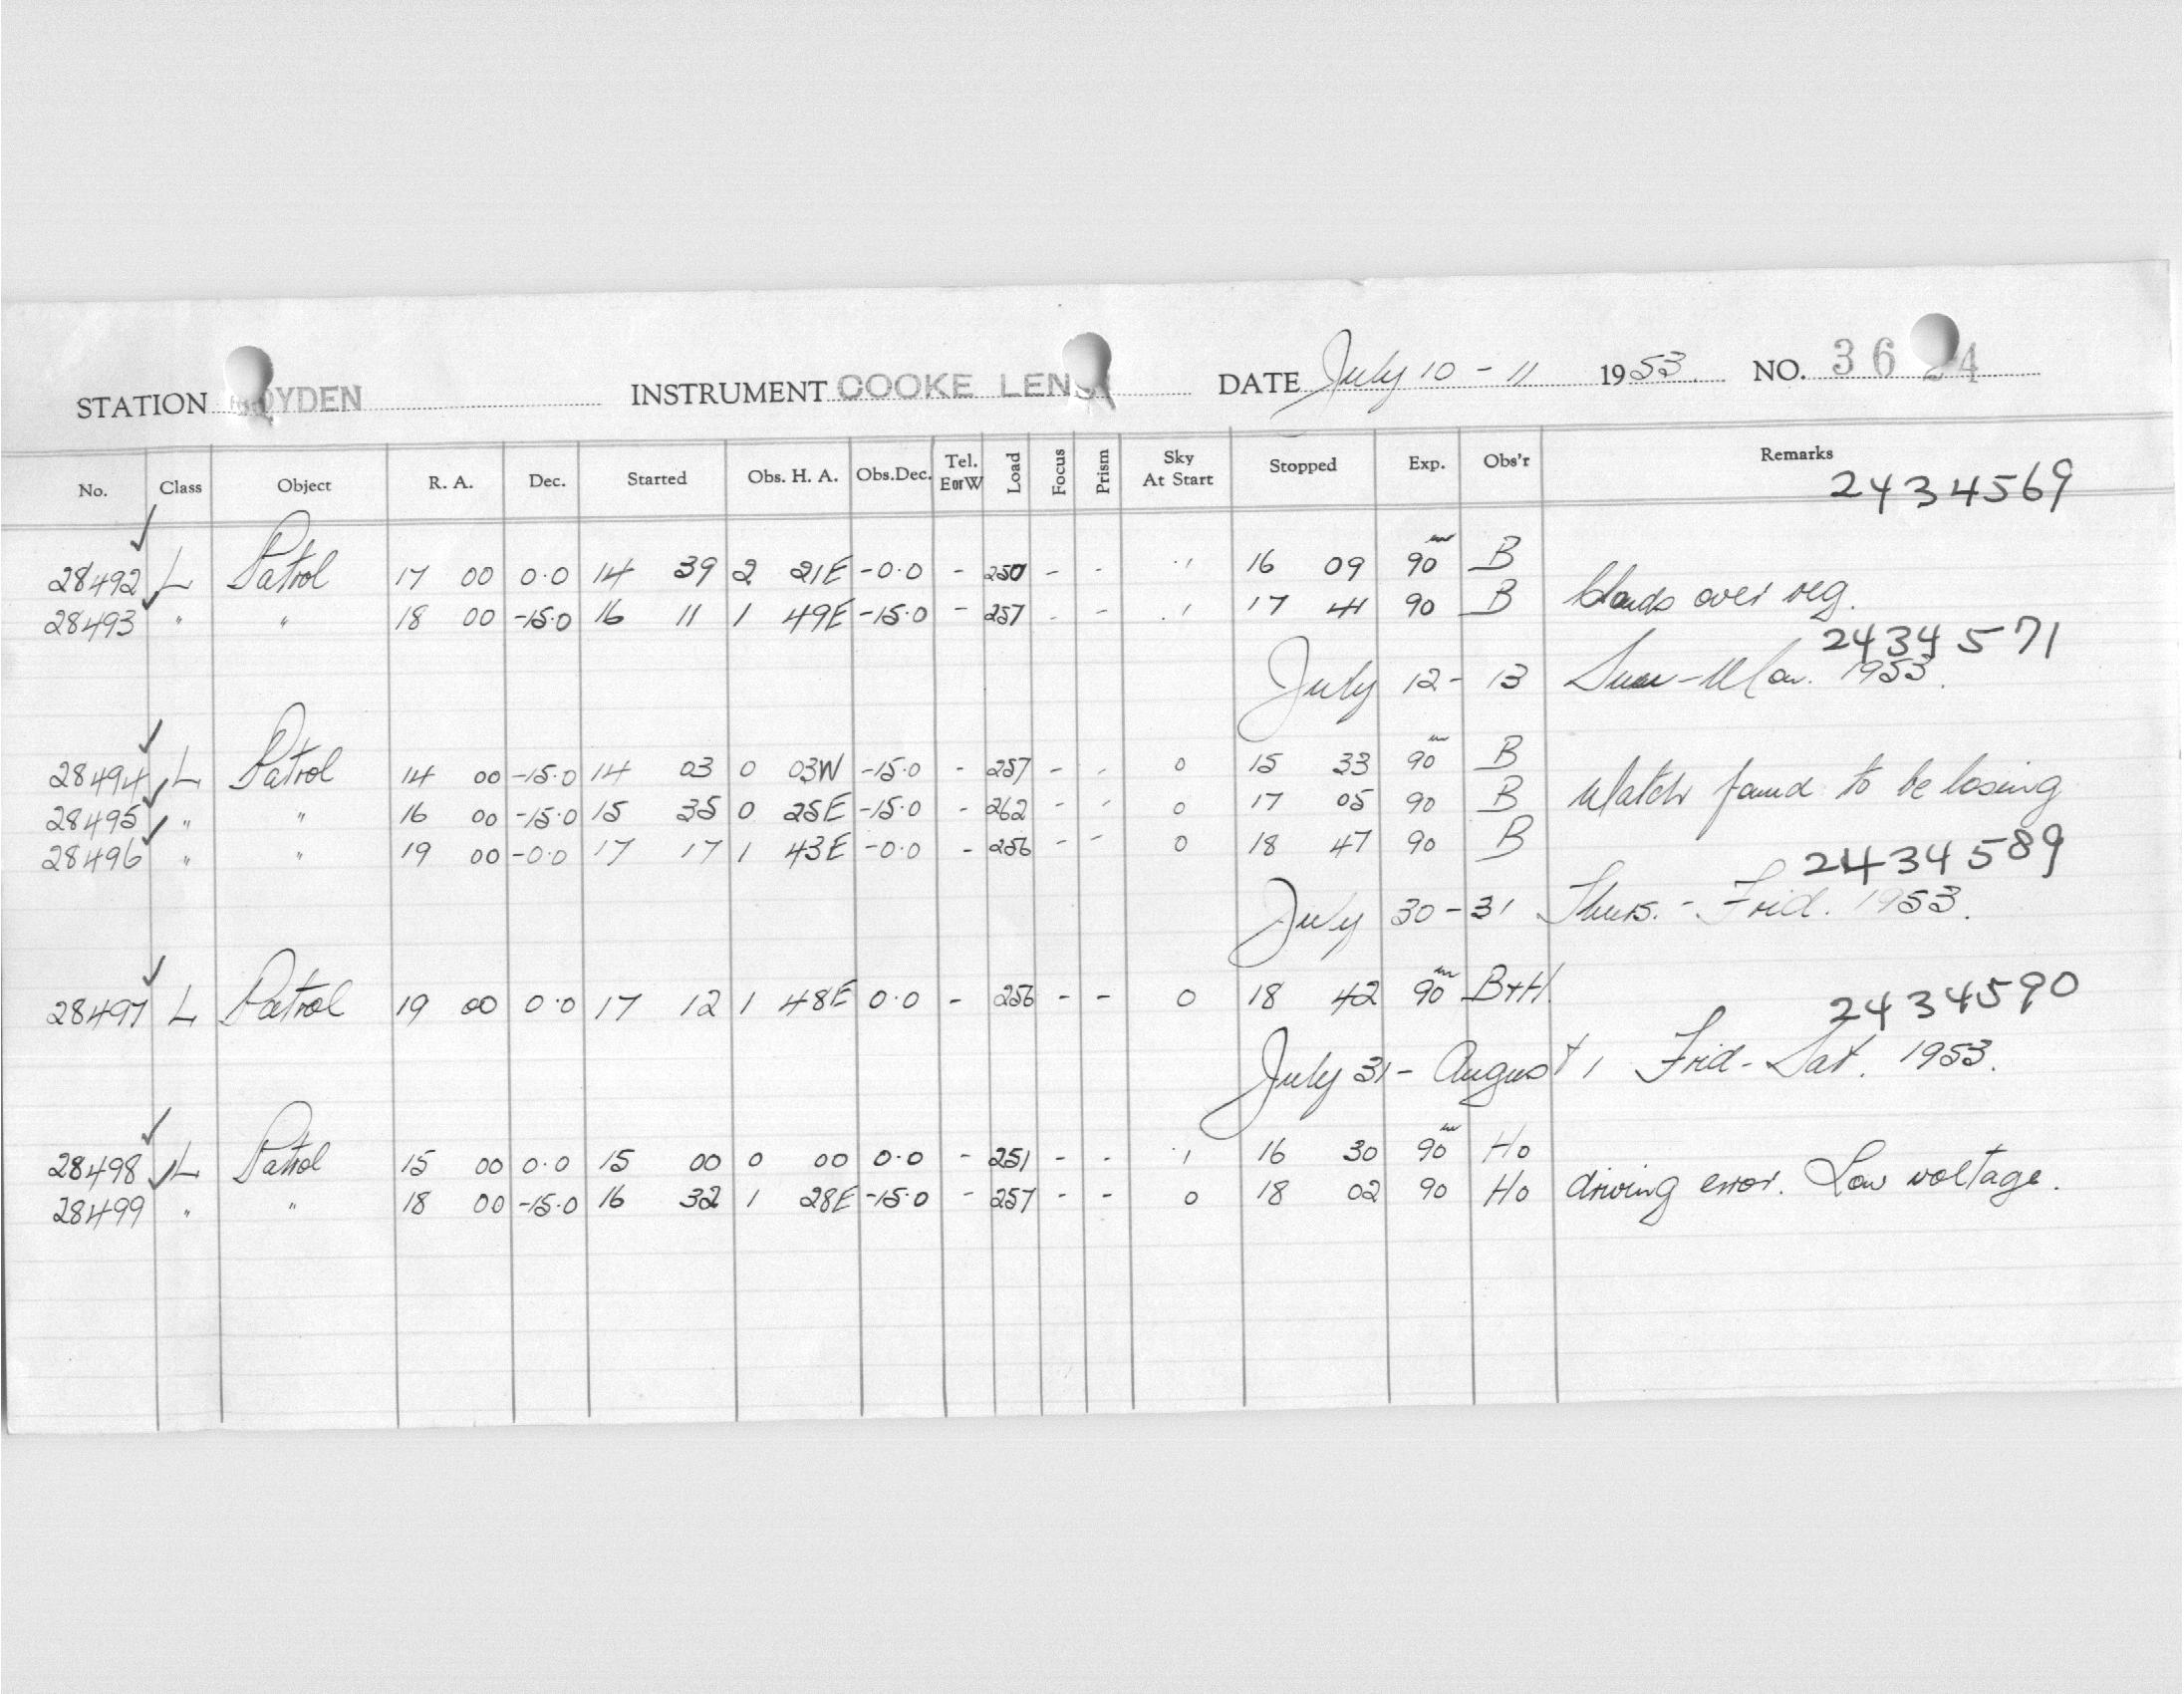 STATION BOYDEN INSTRUMENT COOKE LENS DATE July 10 - 11 1953. NO. 36 24
No. Class Object R. A. Dec. Started Obs. H. A. Obs.Dec. Tel. E or W Load Focus Prism Sky At Start Stopped Exp. Obs'r Remarks
2434569
28492 L Patrol 17 00 0.0 14 39 2 21E -0.0 - 250 - - 16 09 90m B
28493 " " 18 00 -15.0 16 11 1 49E -15.0 - 257 - - 17 41 90 B Clouds over reg.
2434571
July 12 - 13 Sun-Mon. 1953.
28494 L Patrol 14 00 -15.0 14 03 0 03W -15.0 - 257 - - 0 15 33 90m B
28495 " " 16 00 -15.0 15 35 0 25E -15.0 - 262 - - 0 17 05 90 B Watch found to be losing
28496 " " 19 00 -0.0 17 17 1 43E -0.0 - 256 - - 0 18 47 90 B
2434589
July 30 - 31 Thurs. - Frid. 1953.
28497 L Patrol 19 00 0.0 17 12 1 48E 0.0 - 256 - - 0 18 42 90m B+H.
2434590
July 31 - August 1 Frid - Sat. 1953.
28498 L Patrol 15 00 0.0 15 00 0 00 0.0 - 251 - - 16 30 90m Ho
28499 " " 18 00 -15.0 16 32 1 28E -15.0 - 257 - - 0 18 02 90 Ho driving error. Low voltage.